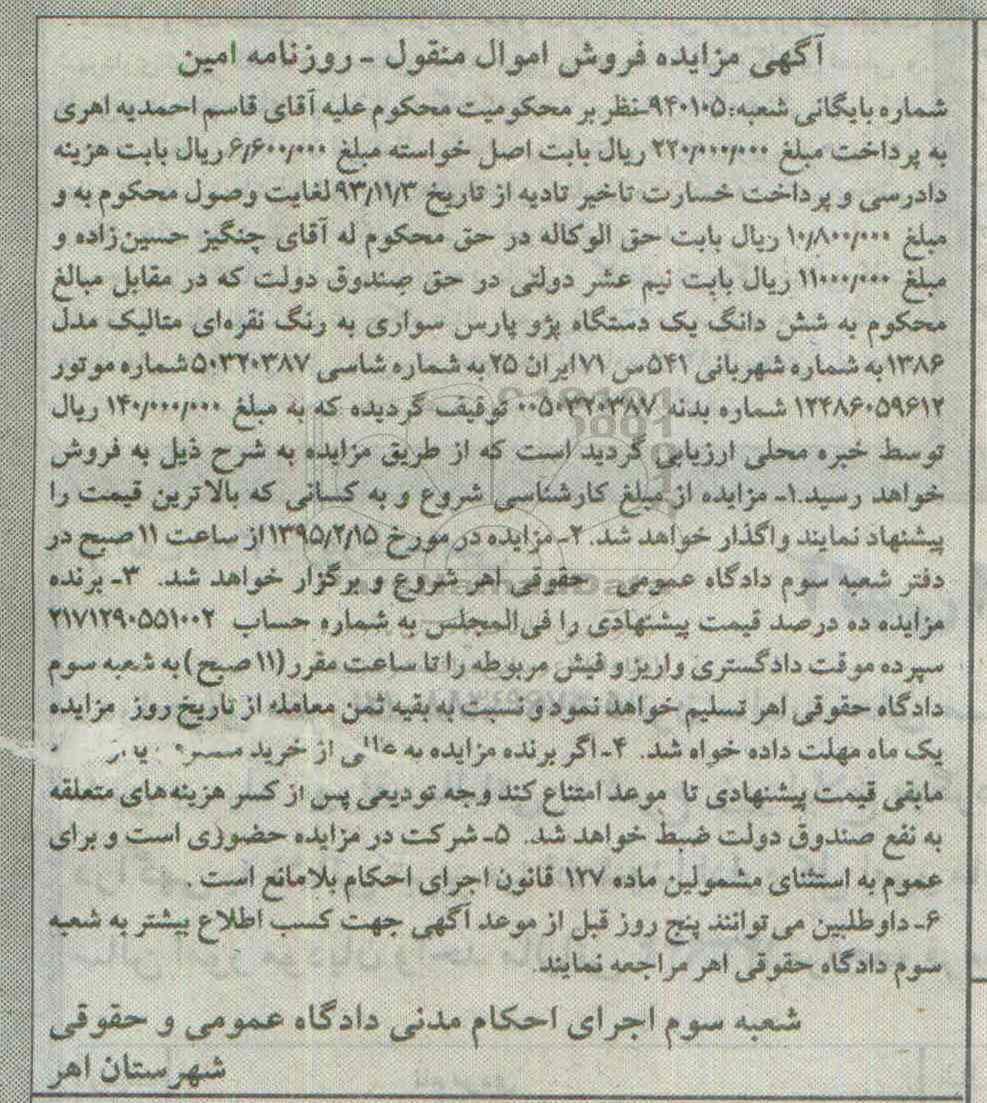 آگهی مزایده فروش اموال منقول - روزنامه امین
شماره بایگانی شعبه:۹۴۰۱۰۵-نظر بر محکومیت محکوم علیه آقای قاسم احمدیه اهری
به پرداخت مبلغ ۲۲۰/۰۰۰/۰۰۰ ریال بابت اصل خواسته مبلغ ۶/۶۰۰/۰۰۰ ریال بابت هزینه
دادرسی و پرداخت خسارت تاخیر تادیه از تاریخ ۹۳/۱۱/۳ لغایت وصول محکوم به و
مبلغ ۱۰/۸۰۰/۰۰۰ ریال بابت حق الوکاله در حق محکوم له آقای چنگیز حسین‌زاده و
مبلغ ۱۱۰۰۰/۰۰۰ ریال بابت نیم عشر دولتی در حق صندوق دولت که در مقابل مبالغ
محکوم به شش دانگ یک دستگاه پژو پارس سواری به رنگ نقره‌ای متالیک مدل
۱۳۸۶ به شماره شهربانی ۵۴۱س ۷۱ ایران ۲۵ به شماره شاسی ۵۰۳۲۰۳۸۷ شماره موتور
۱۲۴۸۶۰۵۹۶۱۲ شماره بدنه ۰۰۵۰۳۲۰۳۸۷ توقیف گردیده که به مبلغ ۱۴۰/۰۰۰/۰۰۰ ریال
توسط خبره محلی ارزیابی گردید است که از طریق مزایده به شرح ذیل به فروش
خواهد رسید.۱- مزایده از مبلغ کارشناسی شروع و به کسانی که بالاترین قیمت را
پیشنهاد نمایند واگذار خواهد شد. ۲- مزایده در مورخ ۱۳۹۵/۲/۱۵ از ساعت ۱۱ صبح در
دفتر شعبه سوم دادگاه عمومی حقوقی اهر شروع و برگزار خواهد شد. ۳- برنده
مزایده ده درصد قیمت پیشنهادی را فی‌المجلس به شماره حساب ۲۱۷۱۲۹۰۵۵۱۰۰۲
سپرده موقت دادگستری واریز و فیش مربوطه را تا ساعت مقرر (۱۱ صبح) به شعبه سوم
دادگاه حقوقی اهر تسلیم خواهد نمود و نسبت به بقیه ثمن معامله از تاریخ روز مزایده
یک ماه مهلت داده خواه شد. ۴- اگر برنده مزایده به از خرید
مابقی قیمت پیشنهادی تا موعد امتناع کند وجه تودیعی پس از کسر هزینه‌های متعلقه
به نفع صندوق دولت ضبط خواهد شد. ۵- شرکت در مزایده حضوری است و برای
عموم به استثنای مشمولین ماده ۱۲۷ قانون اجرای احکام بلامانع است .
۶- داوطلبین می‌توانند پنج روز قبل از موعد آگهی جهت کسب اطلاع بیشتر به شعبه
سوم دادگاه حقوقی اهر مراجعه نمایند.
شعبه سوم اجرای احکام مدنی دادگاه عمومی و حقوقی
شهرستان اهر